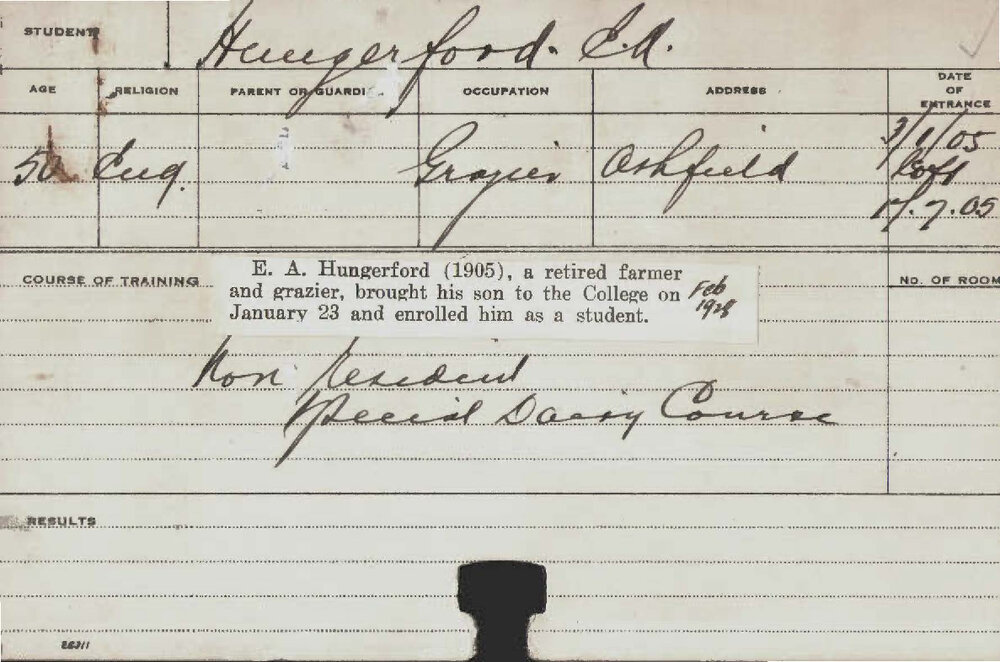 STUDENT Hungerford. E.A.
AGE RELIGION PARENT OR GUARDI OCCUPATION ADDRESS DATE OF ENTRANCE
50 Eng. Grazier Ashfield 3/1/05
Left
17.7.05
COURSE OF TRAINING NO. OF ROOM
E. A. Hungerford (1905), a retired farmer
and grazier, brought his son to the College on
January 23 and enrolled him as a student.
Feb
1928
Non Resident
Special Dairy Course
RESULTS